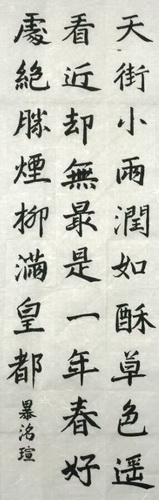 天街小雨潤如酥草色遥
看近却無最是一年春好
處絕勝煙柳滿皇都
暴洺瑄